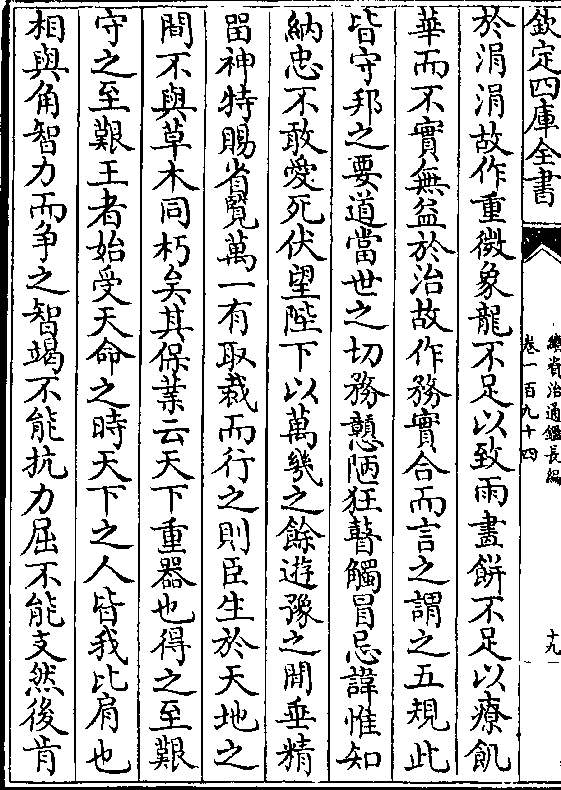 欽定四庫全書
續資治通鑑長編
卷一百九十四
十九
於涓涓故作重微象龍不足以致雨畫餅不足以療飢
華而不實無益於治故作務實合而言之謂之五規此
皆守邦之要道當世之切務戇陋狂瞽觸冒忌諱惟知
納忠不敢愛死伏望陛下以萬幾之餘遊豫之間垂精
留神特賜省覽萬一有取裁而行之則臣生於天地之
間不與草木同朽矣其保業云天下重器也得之至艱
守之至艱王者始受天命之時天下之人皆我比肩也
相與角智力而争之智竭不能抗力屈不能支然後肯